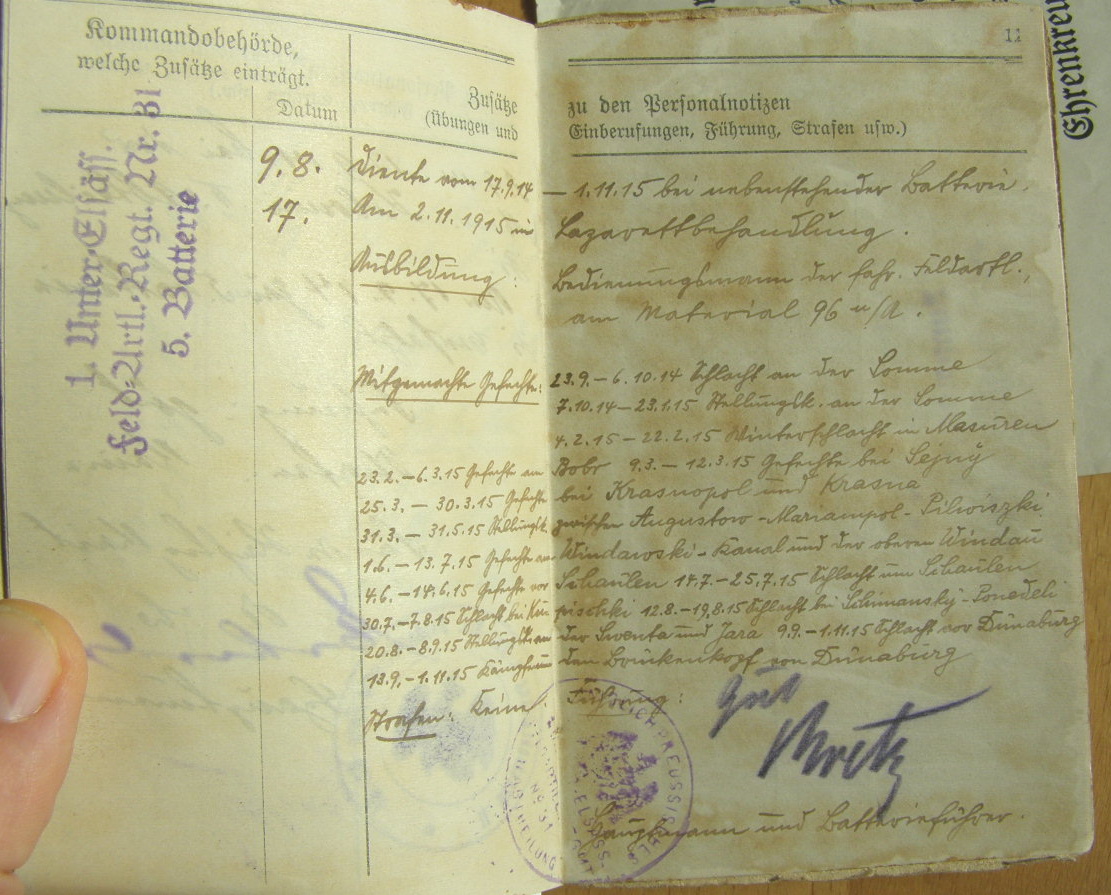 Kommandobehörde,
welche Zusätze einträgt.
Datum
Zusätze
(Übungen und
11
zu den Personalnotizen
Einberufungen, Führung, Strafen usw.)
1. Unter-Elsäss.
Feld-Artl.-Regt. Nr. 31
5. Batterie
9.8. diente vom 17.9.14 – 1.11.15 bei nebenstehender Batterie.
17. Am 2.11.1915 in Lazarettbehandlung.
Ausbildung: Bedienungsmann der fahr. Feldartl.,
am Material 96 n/A.
Mitgemachte Gefechte: 23.9.–6.10.14 Schlacht an der Somme
7.10.14–23.1.15 Stellungsk. an der Somme
4.2.15–22.2.15 Winterschlacht in Masuren
23.2.–6.3.15 Gefechte am Bobr 9.3.–12.3.15 Gefechte bei Sejny
25.3.–30.3.15 Gefechte bei Krasnopol und Krasna
31.3.–31.5.15 Stellungsk. zwischen Augustow-Mariampol-Pilwiszki
1.6.–13.7.15 Gefechte am Windawski-Kanal und der oberen Windau
4.6.–14.6.15 Gefechte vor Schaulen 14.7.–25.7.15 Schlacht um Schaulen
30.7.–7.8.15 Schlacht bei 12.8.–19.8.15 Schlacht bei Schimansky-Ponedeli
20.8.–8.9.15 Stellungsk. an der Swenta und Jara 9.9.–1.11.15 Schlacht vor Dünaburg
13.9.–1.11.15 Kämpfe um den Brückenkopf von Dünaburg
Strafen: Keine. Führung: gut
Hauptmann und Batterieführer.